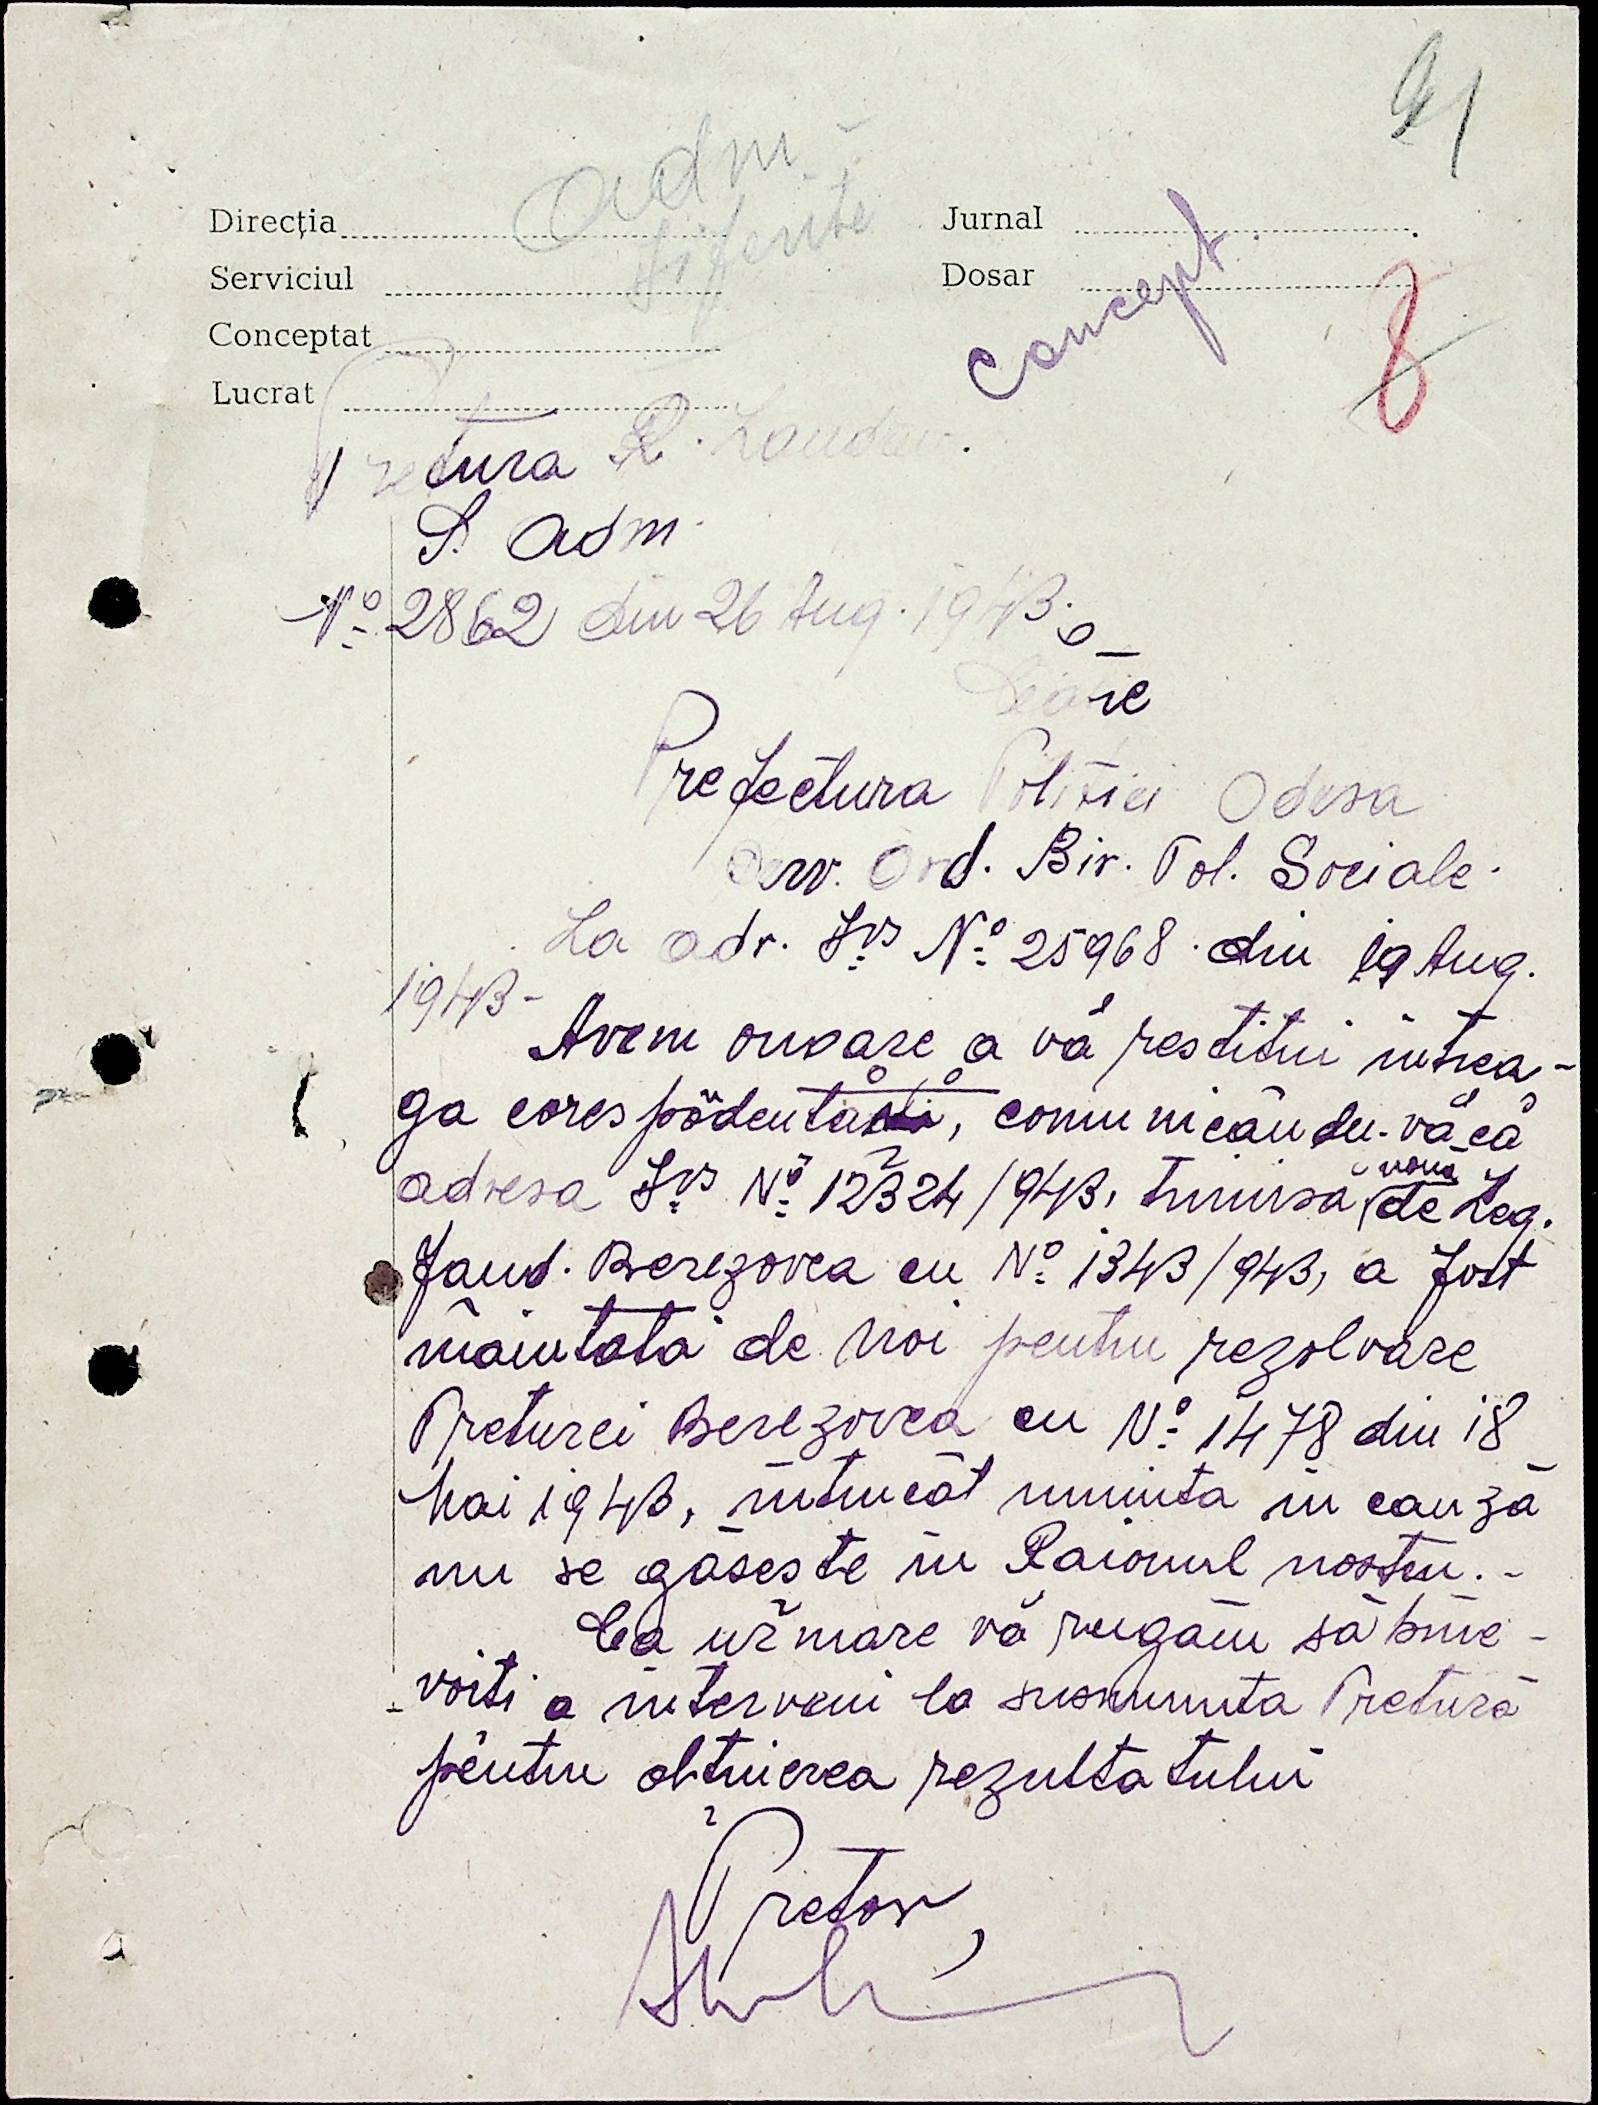 91
adm
diferite
Direcția
Jurnal
Serviciul
Dosar
concept
Conceptat
8
Lucrat
Pretura R. Landau.
S. adm.
Nº 2862 din 26 Aug. 1943.
Către
Prefectura Poliției Odesa
Serv. Ord. Bir. Pol. Sociale.
La adr. Dvs Nº 25968 din 19 Aug.
1943-
Avem onoare a vă restitui întrea-
ga corespōdența, comunicându-vă că
adresa Dvs Nº 12324/943, trimisă nouă de Leg.
Jand. Berezovca cu Nº 1343/943, a fost
înaintată de noi pentru rezolvare
Preturei Berezovca cu Nº 1478 din 18
Mai 1943, întrucât numita în cauză
nu se găsește în Raionul nostru.-
Ca urmare vă rugăm să bine-
voiti a interveni la susnumita Pretură
pentru obtinerea rezultatului
Pretor,